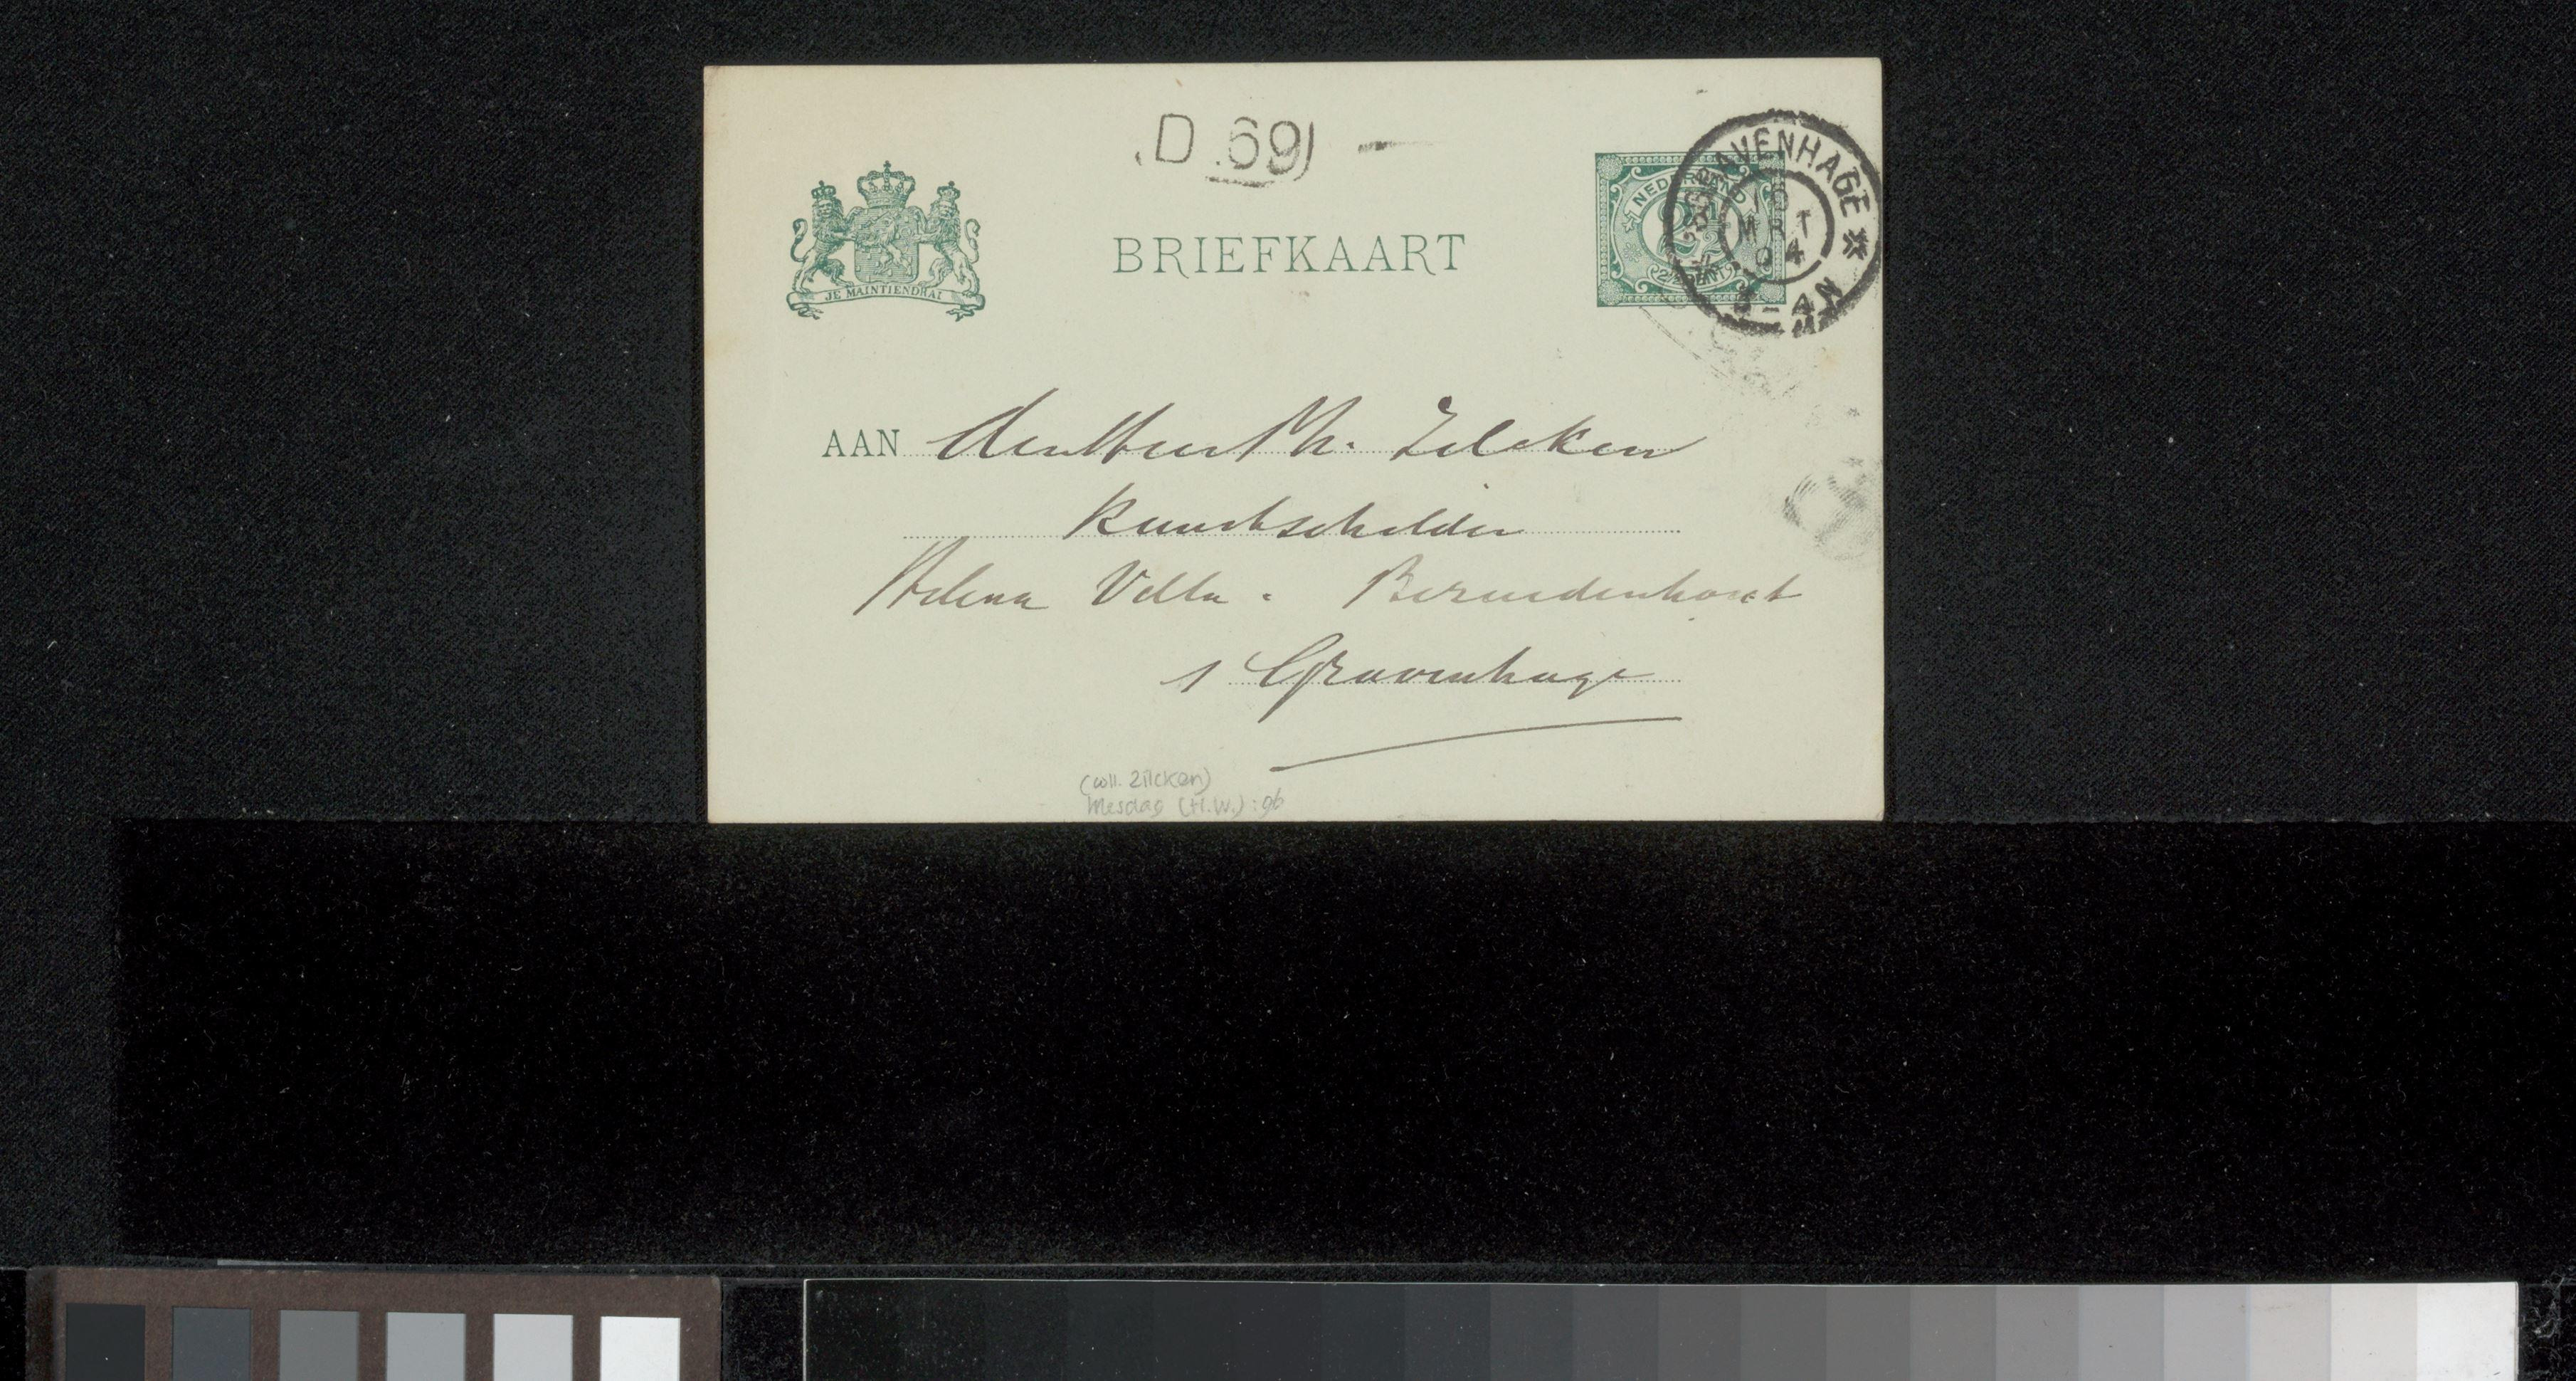 D.69
BRIEFKAART
JE MAINTIENDRAI
NEDERLAND
2½ CENT
AVENHAGE
MRT
04
3-4N
AAN den Heer Ph. Zilcken
Kunstschilder
Helena Villa. Bezuidenhout
s Gravenhage
(coll. Zilcken)
Mesdag (H.W.): 96